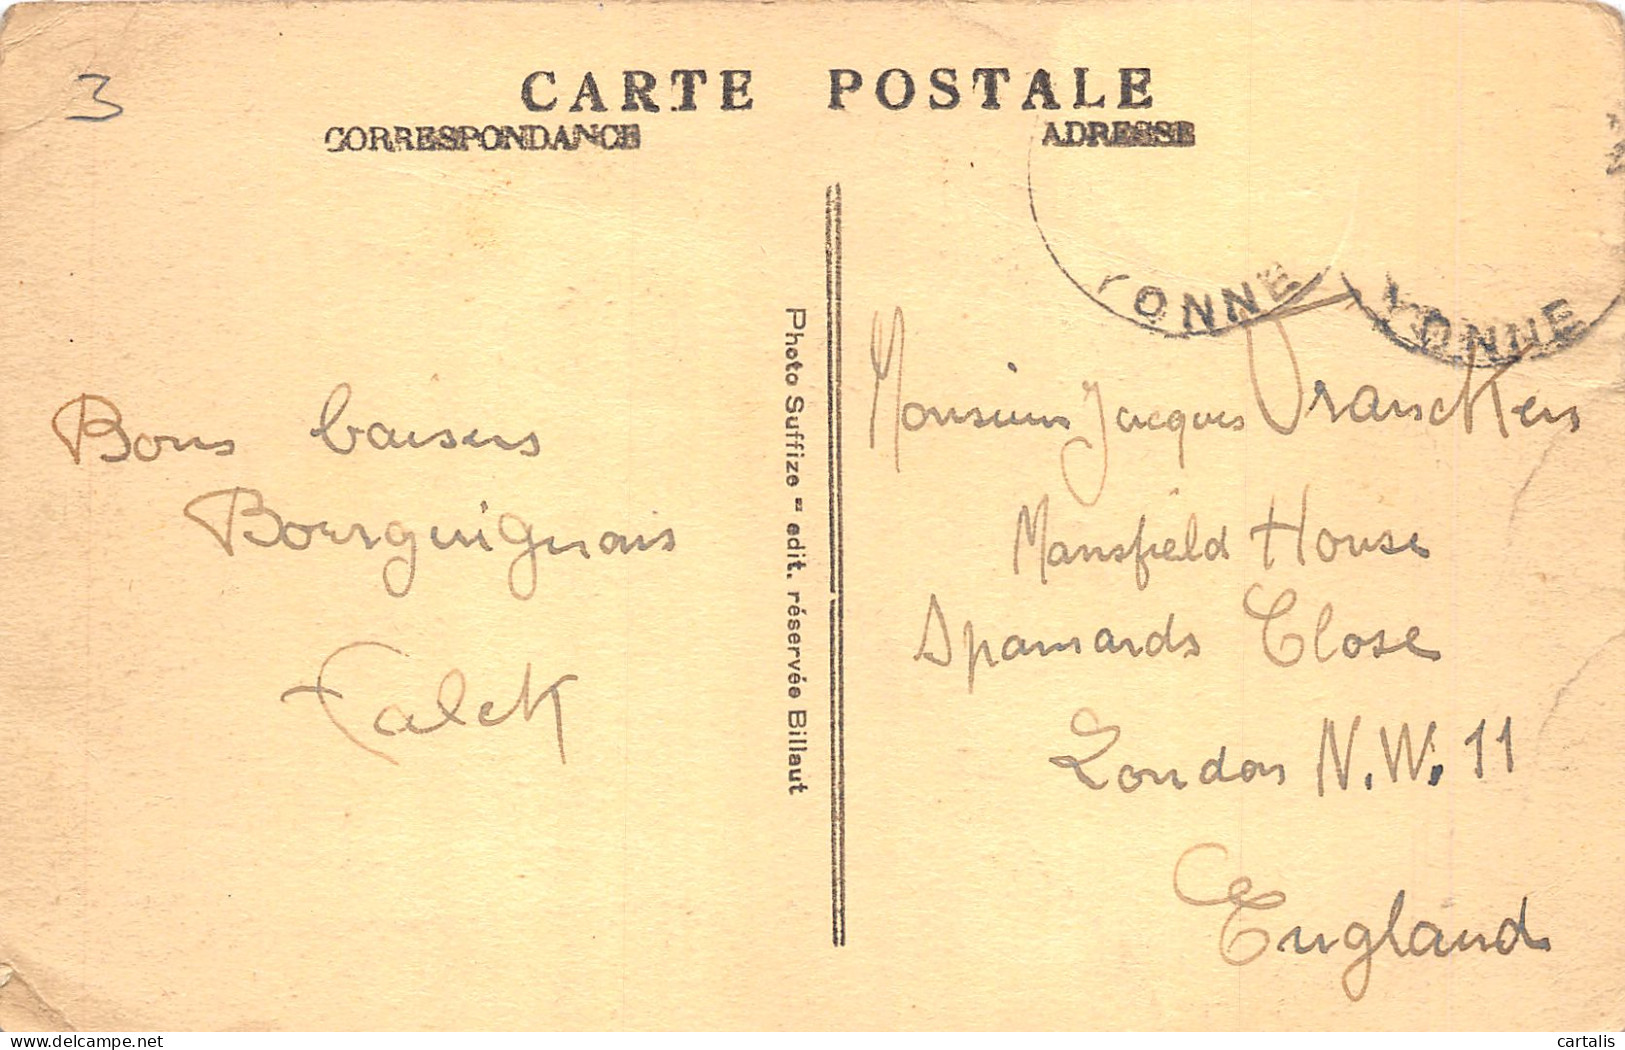 3
CARTE POSTALE
CORRESPONDANCE
ADRESSE
YONNE
YONNE
Bons baisers
Bourguignons
Falck
Photo Suffize = edit. réservée Billaut
Monsieur Jacques Franckten
Mansfield House
Spaniards Close
London N.W. 11
England
cartalis